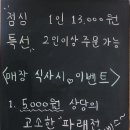 점심 1인 13,000원
특선 2인이상 주문 가능
<매장 식사시, 이벤트>
1. 5,000원 상당의
고소한 "파래전